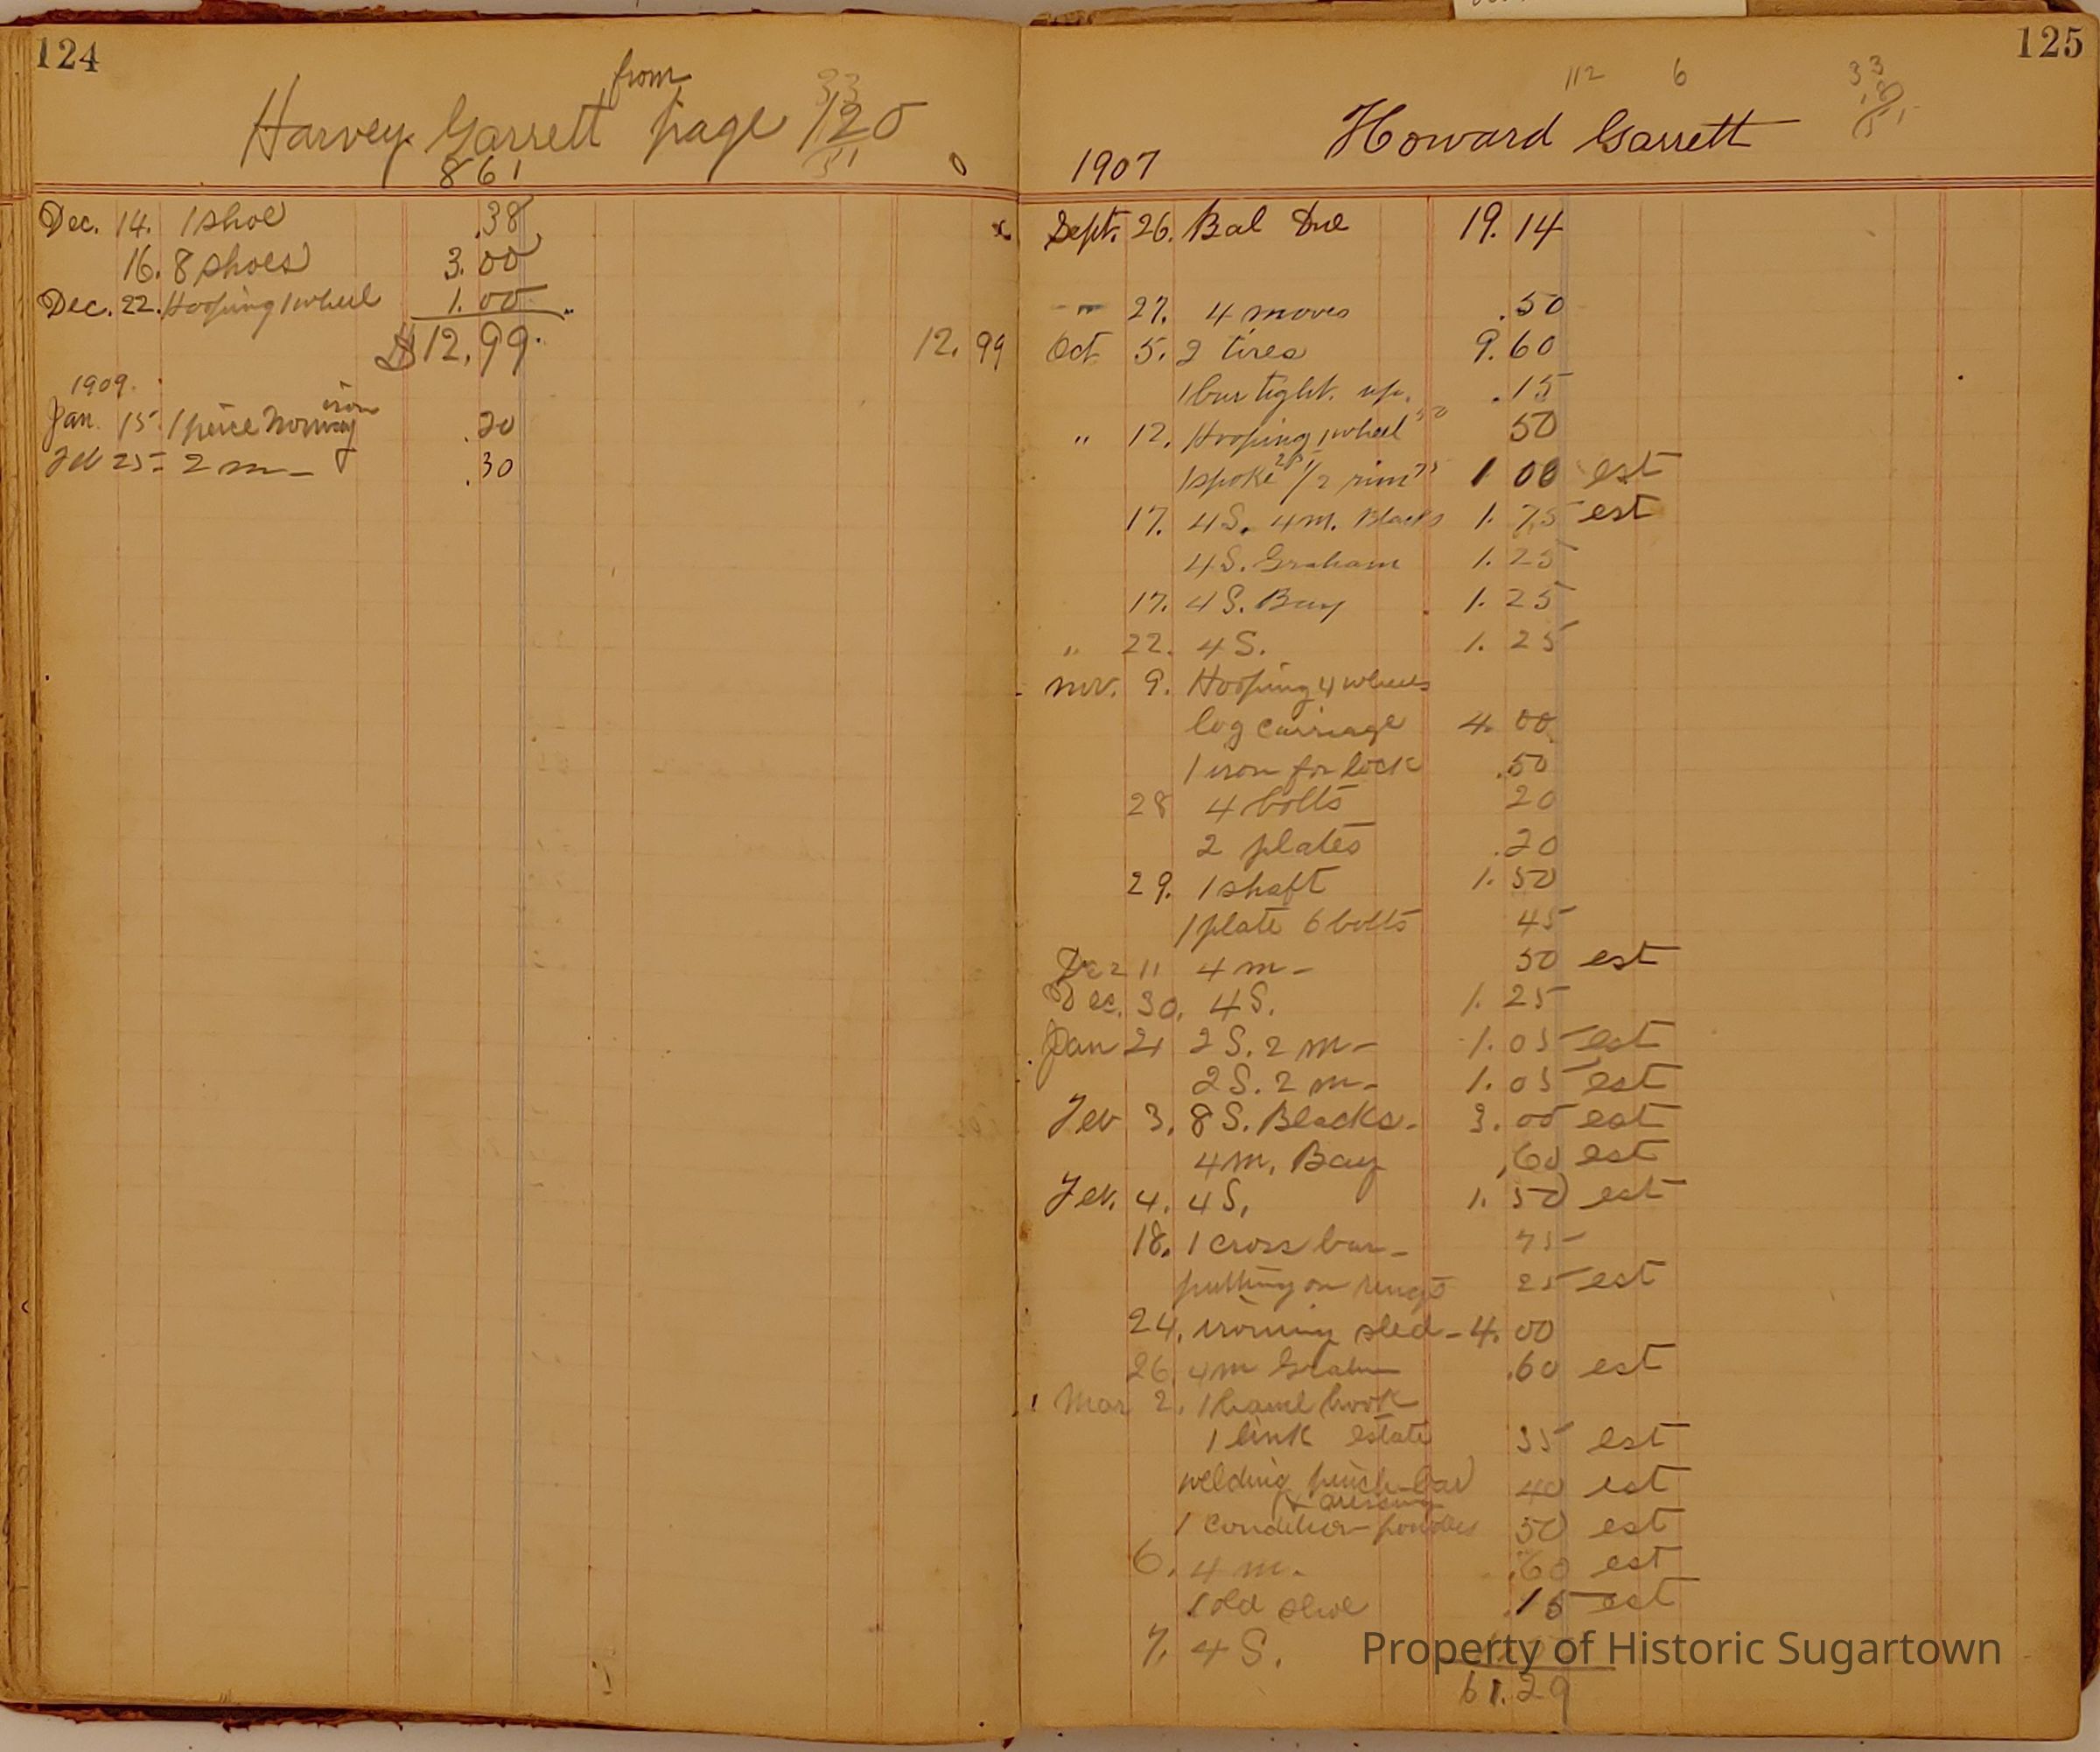 124
from
Harvey Garrett page 120
33
51
861
0
Dec. 14. 1 shoe .38
16. 8 shoes 3.00
Dec. 22. Hooping 1 wheel 1.00
$12.99. 12.99
1909.
iron
Jan. 15. 1 peice Norway .20
Feb 25 - 2 m - .30
125
112 6 33
18
51
Howard Garrett
1907
x Sept. 26. Bal Due 19.14
" 27. 4 moves .50
Oct 5. 2 tires 9.60
1 bur tight. up. .15
" 12. Hooping 1 wheel 50 50
1 spoke 25 1/2 rim 75 1 00 est
17. 4 S. 4 m. Blacks 1.75 est
4 S. Graham 1.25
17. 4 S. Bay 1.25
" 22. 4 S. 1.25
Nov. 9. Hooping 4 wheels
log carriage 4.00
1 iron for lock .50
28 4 bolts 20
2 plates .20
29. 1 shaft 1.50
1 plate 6 bolts 45
Dec 11 4 m - 50 est
Dec. 30. 4 S. 1.25
Jan 21 2 S. 2 m - 1.05 est
2 S. 2 m - 1.05 est
Feb 3. 8 S. Blacks. 3.00 est
4 m. Bay .60 est
Feb. 4. 4 S. 1.50 est
18. 1 cross bar - 75
putting on 25 est
24. ironing sled - 4.00
26. 4 m Graham .60 est
Mar 2. 1 hook
1 link estate 35 est
welding pinch bar 40 est
& dressing
1 condition powders 50 est
6. 4 m. .60 est
1 old shoe .15 est
7. 4 S.
61.29
Property of Historic Sugartown